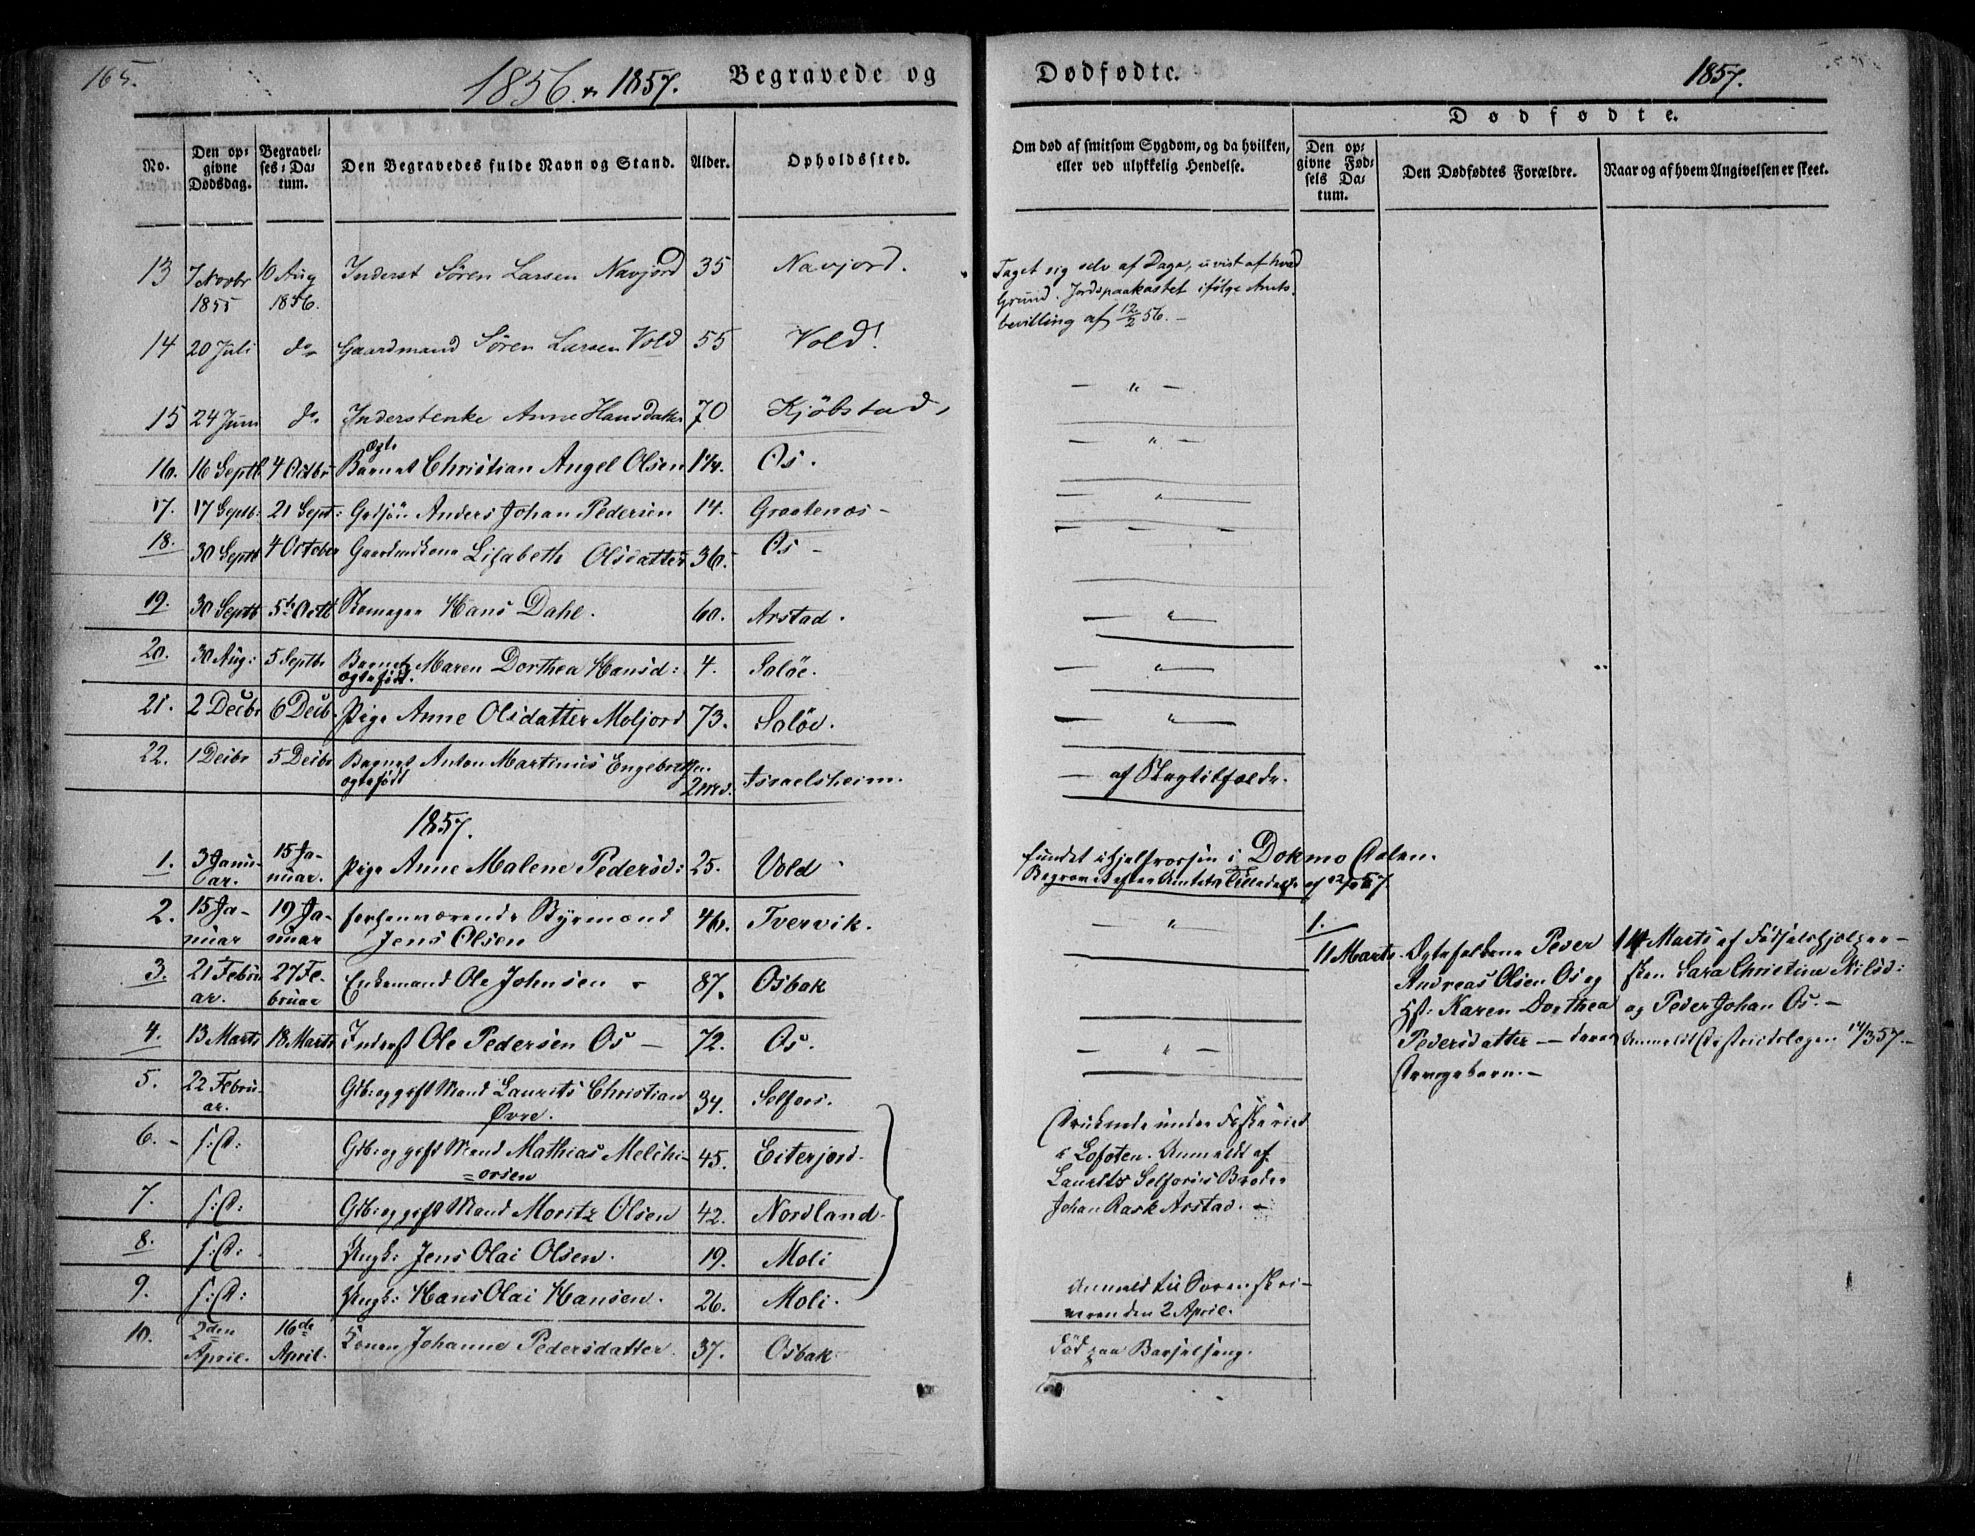 165.
1856 & 1857.
Begravede og
Dødfødte.
1857.
No.
Den opgivne Dødsdag.
Begravelses-Datum.
Den Begravedes fulde Navn og Stand.
Alder.
Opholdssted.
Om død af smitsom Sygdom, og da hvilken, eller ved ulykkelig Hendelse.
Dødfødte.
Den opgivne Fødsels Datum.
Den Dødfødtes Forældre.
Naar og af hvem Angivelsen er skeet.
13 7 Novbr 1855 10 Aug 1856. Inderst Søren Larsen Navjord 35 Navjord.
Taget sig selv af Dage, uvist af hvad
Grund. Jordspaakastet ifølge Amts-
bevilling af 12/2 56. -
14 20 Juli do Gaardmand Søren Larsen Vold 55 Vold!
— " —
15 24 Juni do Inderstenke Anne Hansdatter 70 Kjöbstad,
— " —
16. 16 Septb. 4 Octbr Ægte Barnet Christian Angel Olsen Os.
— " —
17. 17 Septb: 21 Sept: Anders Johan Pedersen 14. Graatenæs -
18. 30 Septb 4 October Gaardmdskone Lisabeth Olsdatter 36. Os -
19. 30 Septb 5te Octb Hans Dahl. 60. Arstad.
— " —
20. 30 Aug: 5 Septb. Barnet Maren Dorthea Hansd: 4. Saløe.
ægtefödt.
— " —
21. 2 Decbr 6 Decb. Pige Anne Olsdatter Moljord 73. Saløe.
— " —
22. 1 Decbr 5 Decbr Barnet Anton Martinus Engebretsen. 2 md. Israelsheim.
ægtefödt
— af Slagtilfælde.
1857.
1. 3 Januar. 15 Januar. Pige Anne Malene Pedersd: 25. Vold.
fundet ihjelfrossen i Dokmo
Begravet efter Amtets Tilladelse af
2. 15 Januar 19 Januar forhenværende Bÿemand 46. Tvervik.
Jens Olsen
— " —
3. 21 Februar. 27 Februar Enkemand Ole Johnsen 87. Osbak
4. 13 Marts 18 Marts Inderst Ole Pedersen Os — 72. Os.
— " —
5. 22 Februar. Gbr: og gift Mand Laurits Christian 34. Selfors.
Øvre.
6. - Gbr: og gift Mand Mathias Melchi- 45. Eiterjord.
=orsen
7. Gbr: og gift Mand Moritz Olsen 42. Nordland.
8. Ungk: Jens Olai Olsen. 19. Moli
9. Ungk: Hans Olai Hansen. 26. Moli.
Druknede under Fiskeried
i Lofoten. Anmeldt af
Laurits Selfors's Broder
Johan Rask Arstad. -
Anmeld til Sorenskri-
veren den 2 April.
10. 2den April. 16de April. Konen Johanne Pedersdatter. 37. Osbak
Död paa Barselseng.
1.
11 Marts. Ægtefolkene Peder
Andreas Olsen Os og
H: Karen Dorthea
Pedersdatter — deres
Drengebarn. -
14 Marts af Födselshjelper-
sken Sara Christine Nilsd:
og Peder Johan Os. -
Anmeldt Districtslægen 14/3 57. -